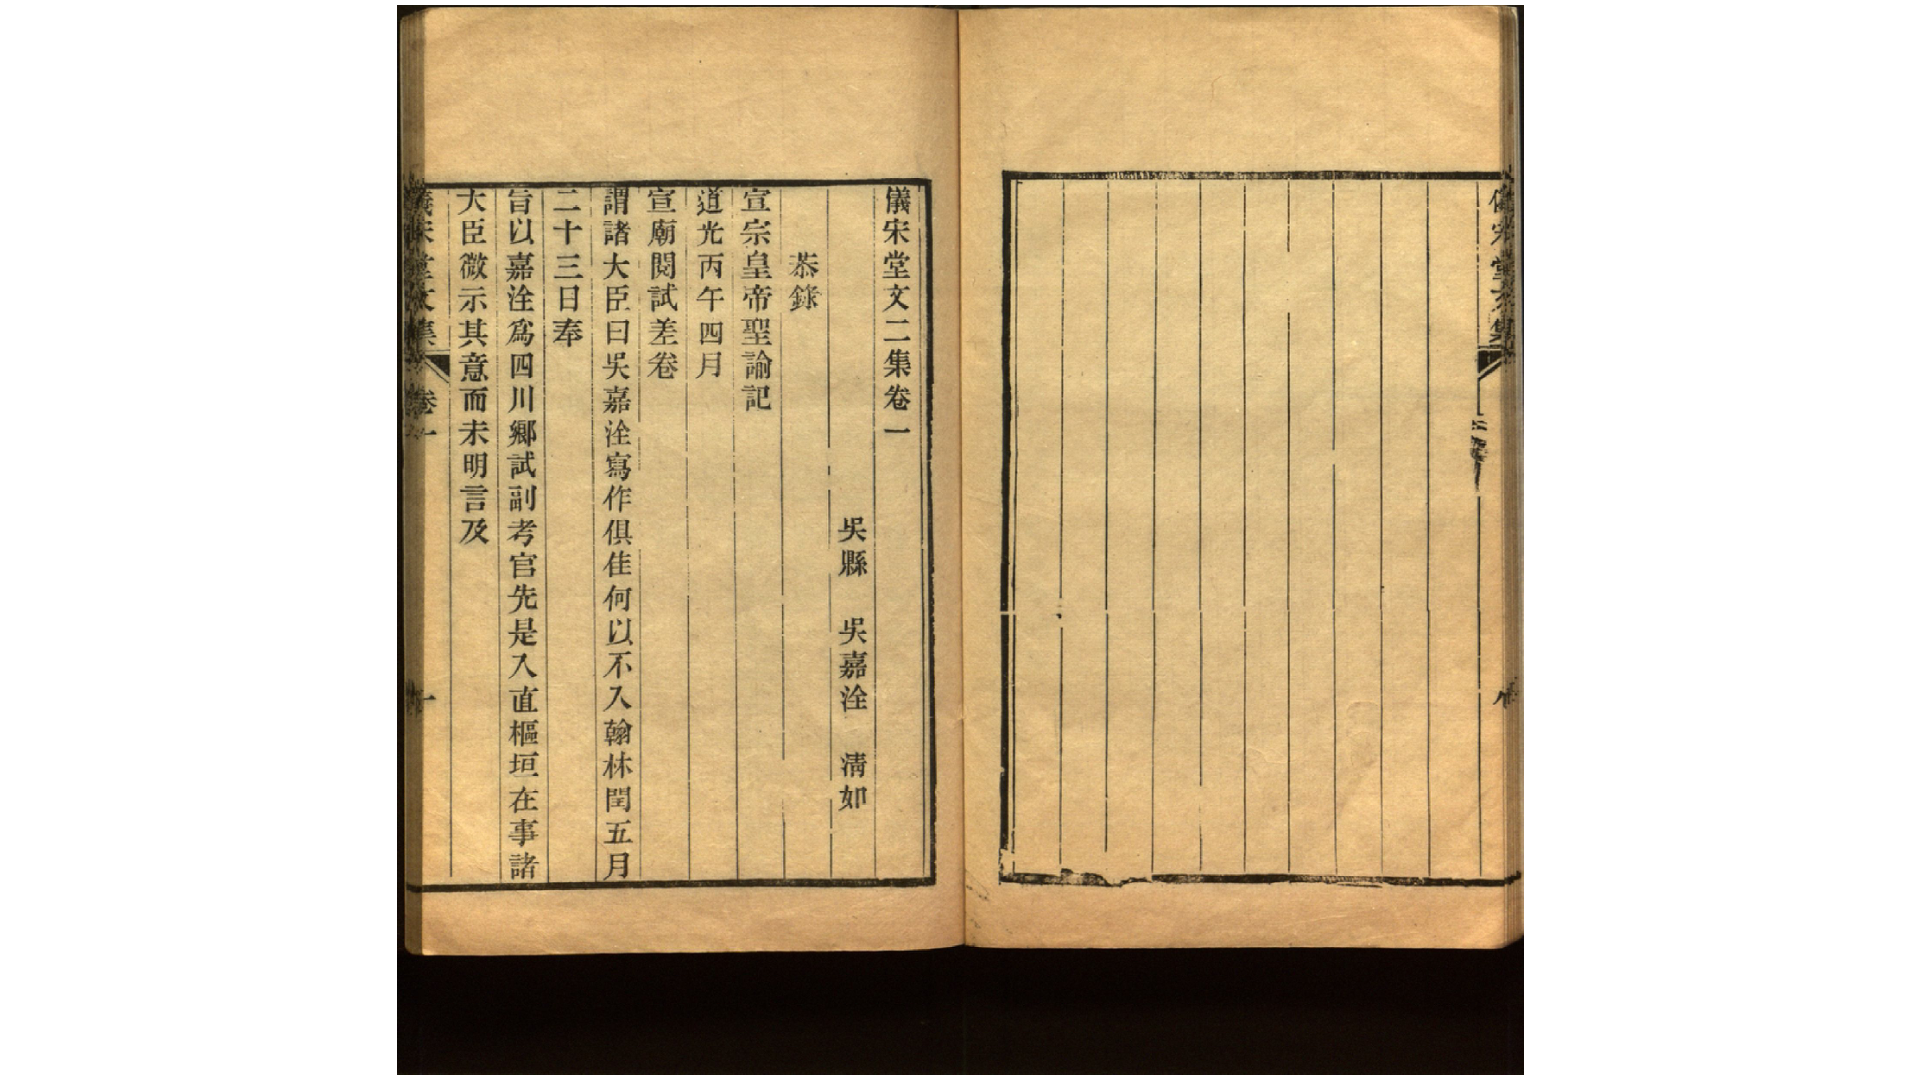 儀宋堂文二集卷一
吳縣　吳嘉洤　淸如
恭錄
宣宗皇帝聖諭記
道光丙午四月
宣廟閱試差卷
謂諸大臣曰吳嘉洤寫作俱佳何以不入翰林閏五月
二十三日奉
旨以嘉洤爲四川鄉試副考官先是入直樞垣在事諸
大臣微示其意而未明言及
儀宋堂文集　卷一　一